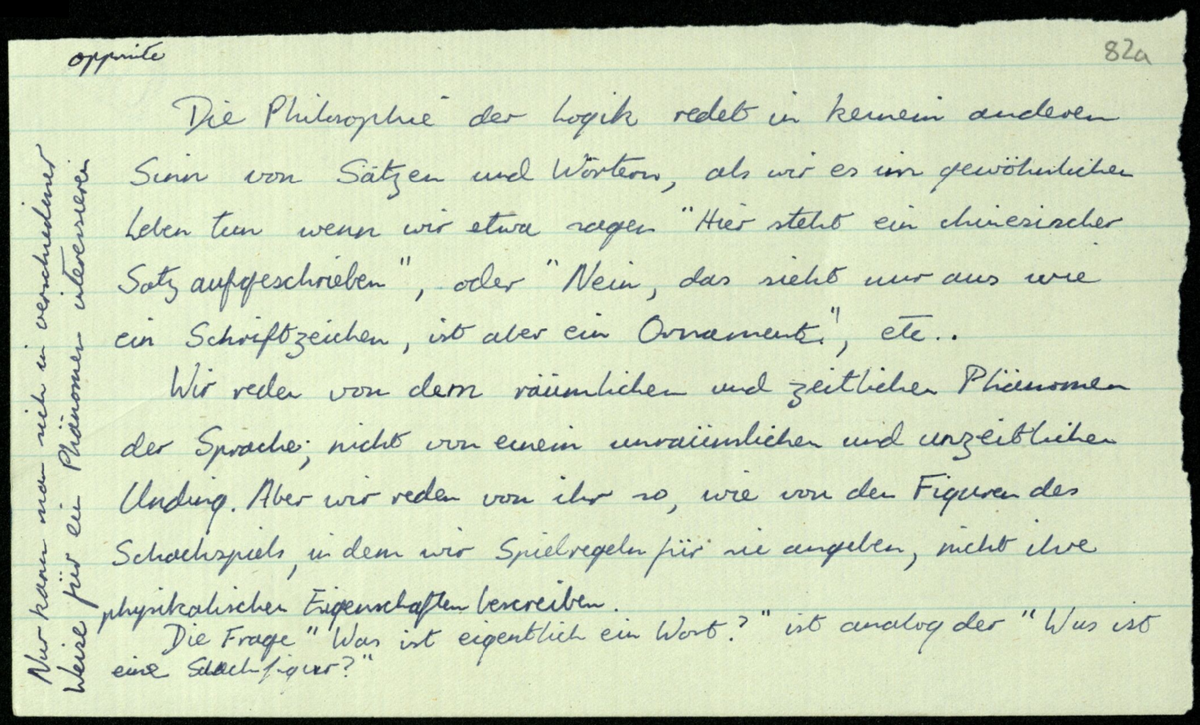 opposite
82a
Die Philosophie der Logik redet in keinem anderen
Sinn von Sätzen und Wörtern, als wir es im gewöhnlichen
Leben tun wenn wir etwa sagen "Hier steht ein chinesischer
Satz aufgeschrieben", oder "Nein, das sieht nur aus wie
ein Schriftzeichen, ist aber ein Ornament.", etc..
Wir reden von dem räumlichen und zeitlichen Phänomen
der Sprache; nicht von einem unräumlichen und unzeitlichen
Unding. Aber wir reden von ihr so, wie von den Figuren des
Schachspiels, in dem wir Spielregeln für sie angeben, nicht ihre
physikalischen Eigenschaften bescreiben.
Die Frage "Was ist eigentlich ein Wort?" ist analog der "Was ist
eine Schachfigur?"
Nur kann man sich in verschiedener
Weise für ein Phänomen interessieren